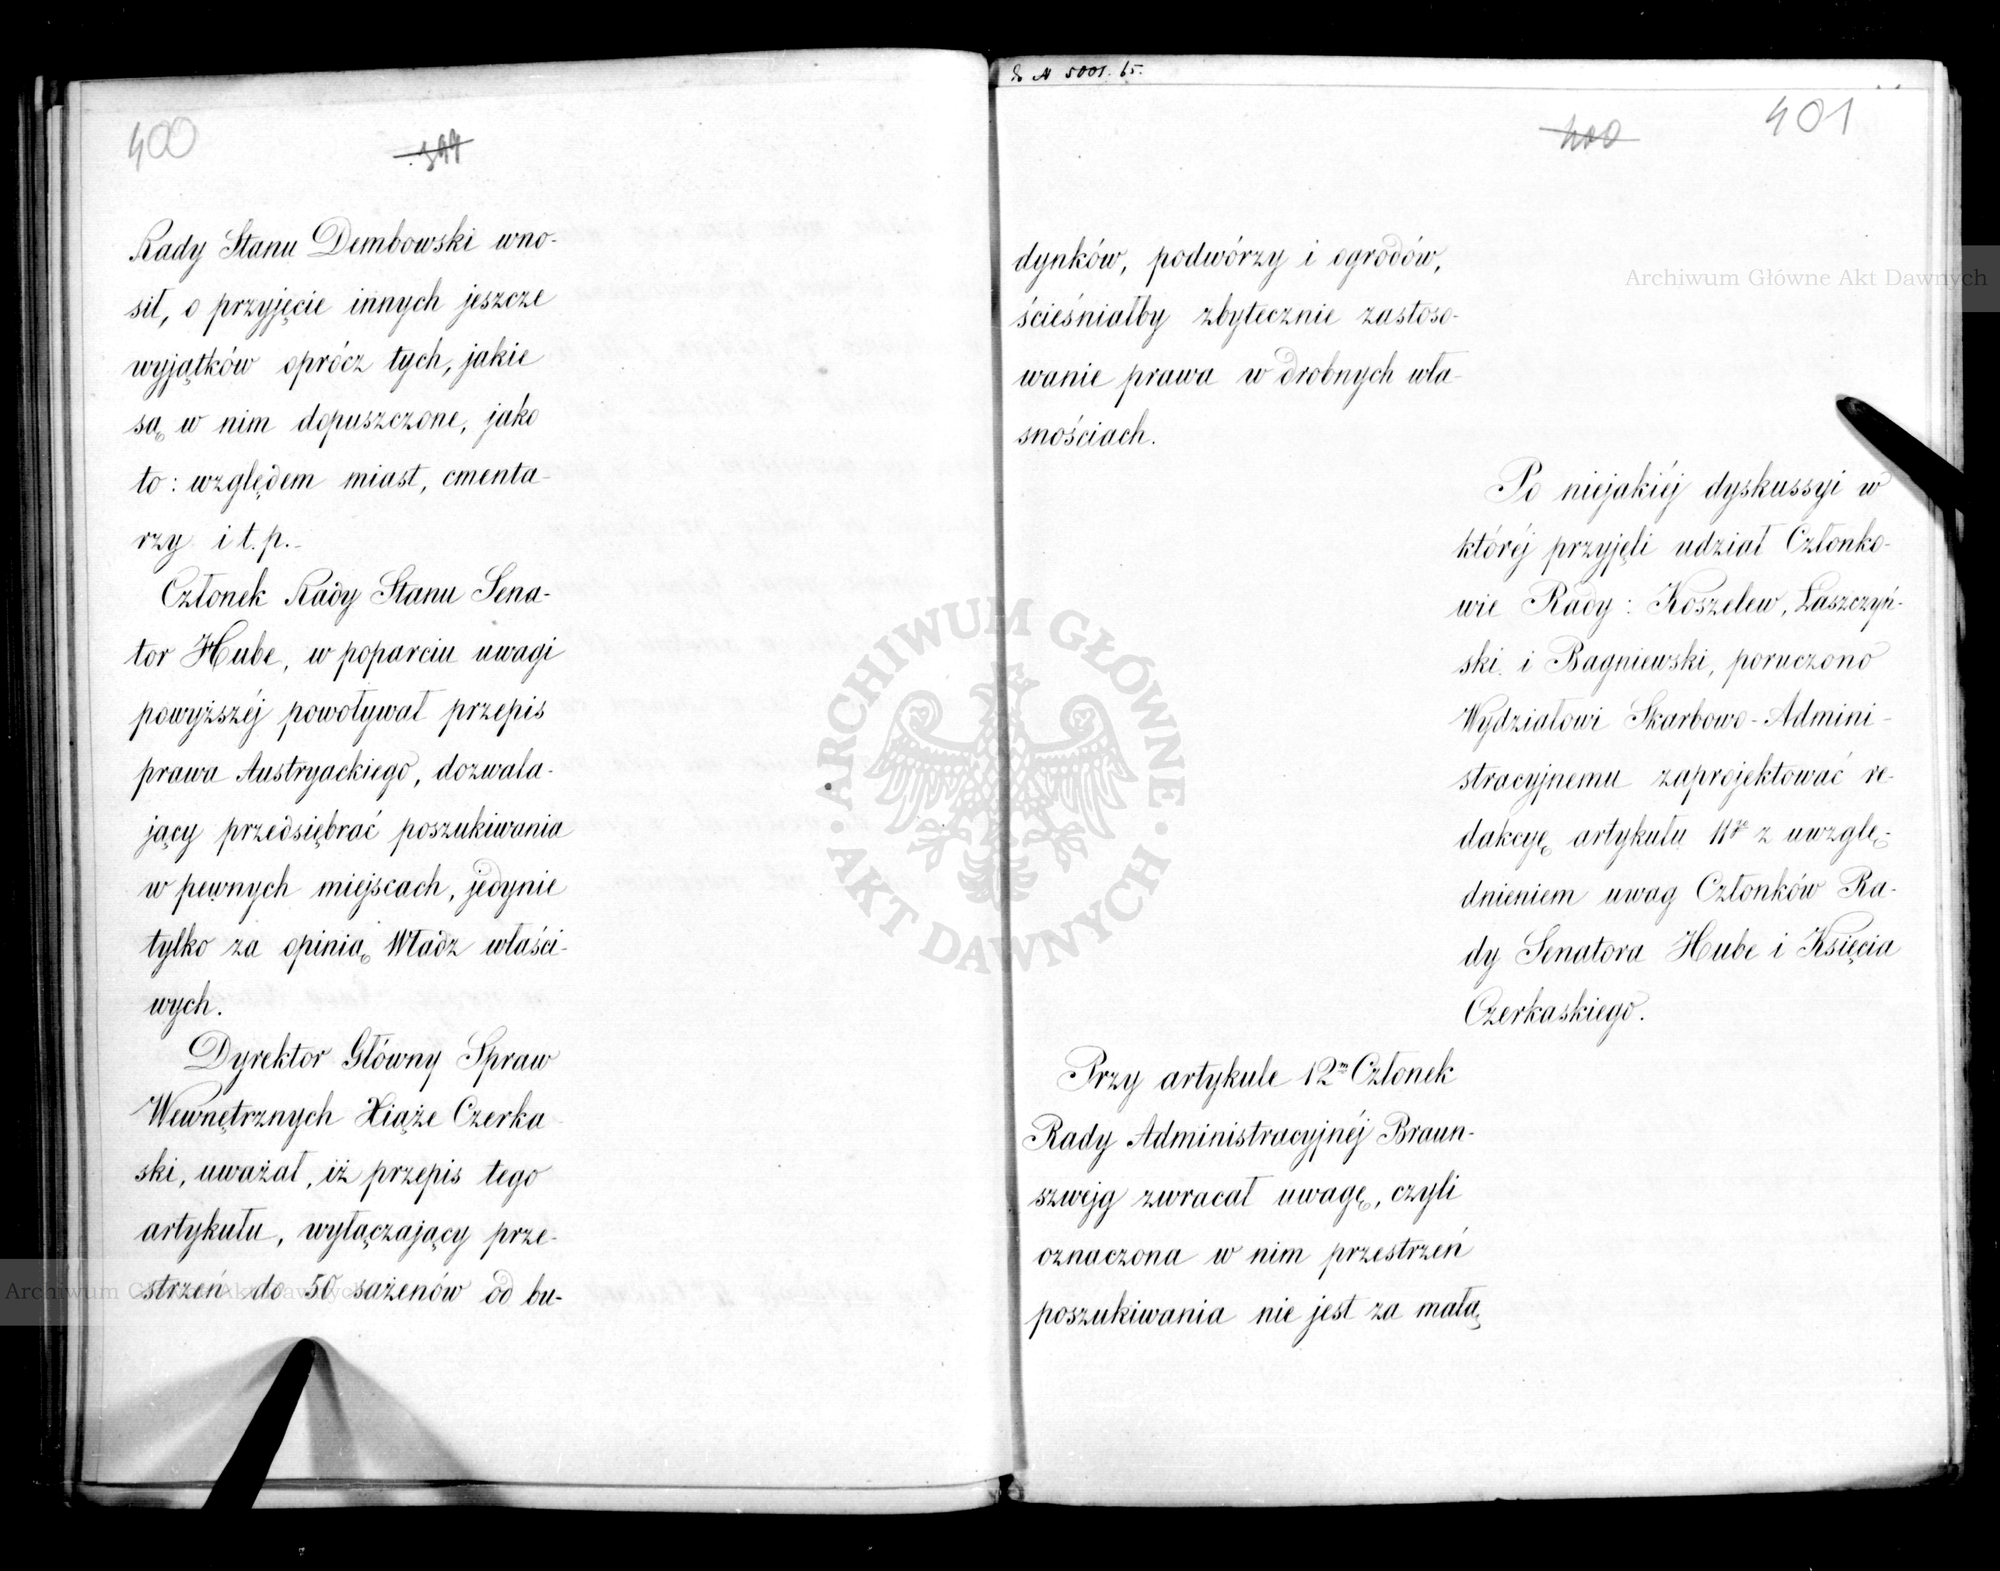 400
399
Rady Stanu Dembowski wno-
sił, o przyjęcie innych jeszcze
wyjątków oprócz tych, jakie
są w nim dopuszczone, jako
to: względem miast, cmenta-
rzy i t. p.
Członek Rady Stanu Sena-
tor Hube, w poparciu uwagi
powyższéj powoływał przepis
prawa Austryackiego, dozwala-
jący przedsiębrać poszukiwania
w pewnych miejscach, jedynie
tylko za opinią Władz właści-
wych.
Dyrektor Główny Spraw
Wewnętrznych Xiąże Czerka-
ski, uważał, iż przepis tego
artykułu, wyłączający prze-
strzeń do 50 sażenów od bu-
№ 5001. 65.
400
401
dynków, podwórzy i ogrodów,
ścieśniałby zbytecznie zastoso-
wanie prawa w drobnych wła-
snościach.
Po niejakiéj dyskussyi w
któréj przyjęli udział Członko-
wie Rady: Koszelew, Łaszczyń-
ski i Bagniewski, poruczono
Wydziałowi Skarbowo-Admini-
stracyjnemu zaprojektować re-
dakcyę artykułu 11go z uwzglę-
dnieniem uwag Członków Ra-
dy Senatora Hube i Księcia
Czerkaskiego.
Przy artykule 12m Członek
Rady Administracyjnéj Braun-
szwejg zwracał uwagę, czyli
oznaczona w nim przestrzeń
poszukiwania nie jest za małą
Archiwum Główne Akt Dawnych
Archiwum Główne Akt Dawnych
ARCHIWUM GŁÓWNE · AKT DAWNYCH ·